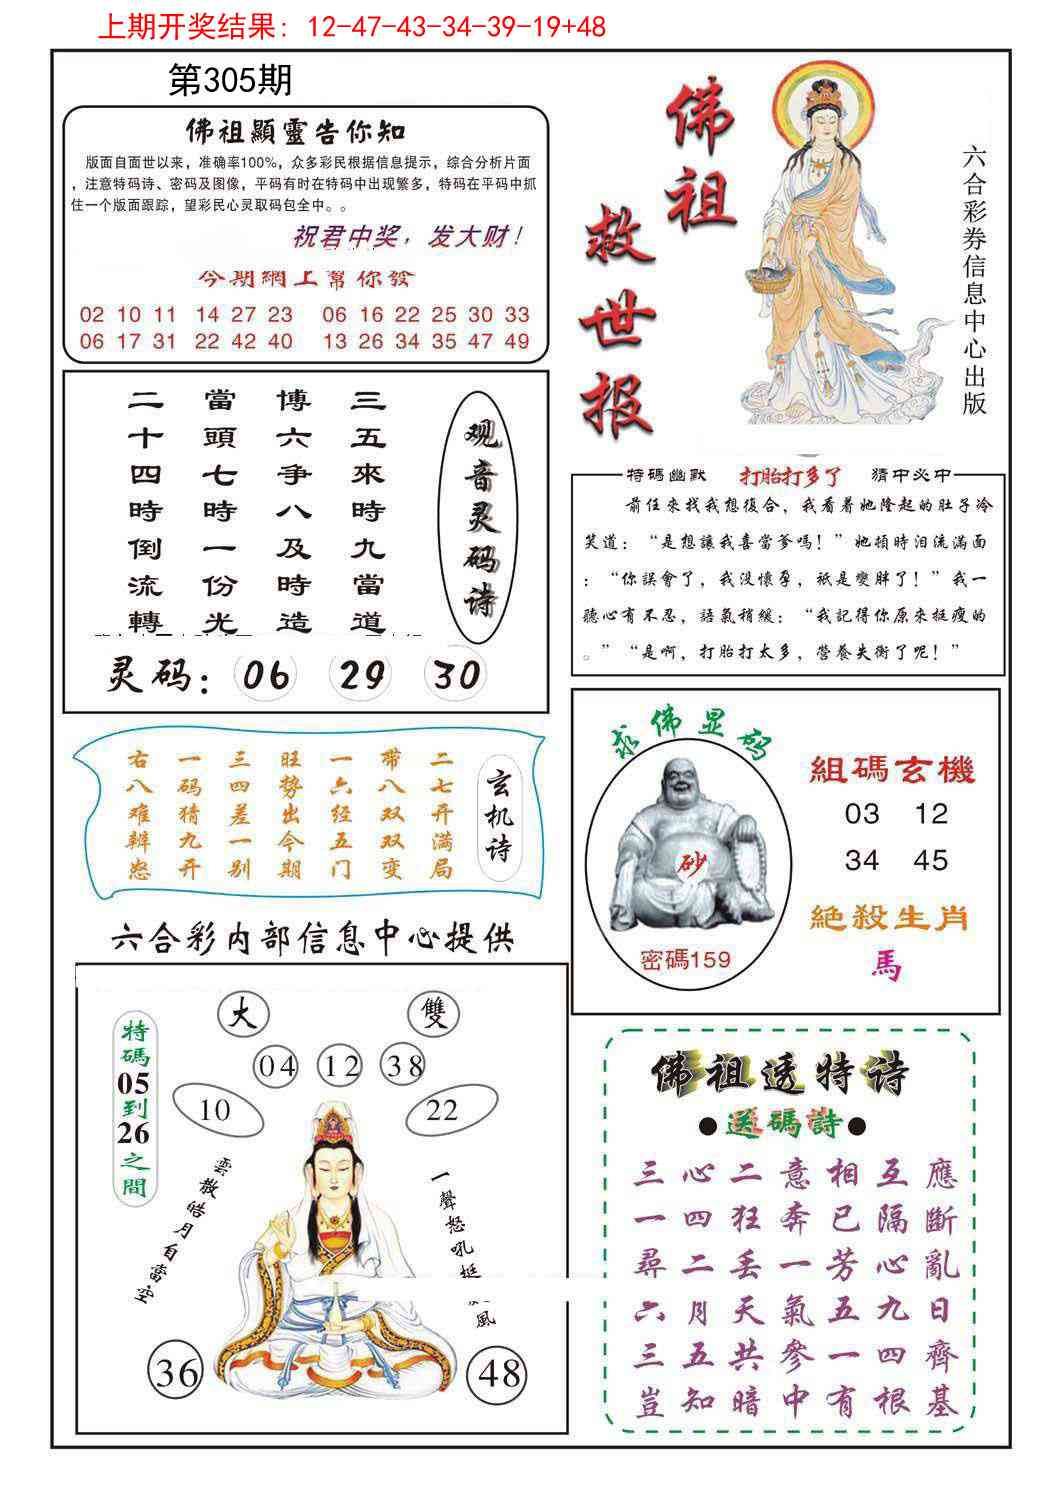 上期开奖结果: 12-47-43-34-39-19+48
第305期
佛祖顯靈告你知
版面自面世以来，准确率100%，众多彩民根据信息提示，综合分析片面
，注意特码诗、密码及图像，平码有时在特码中出现繁多，特码在平码中抓
住一个版面跟踪，望彩民心灵取码包全中。。
祝君中奖，发大财！
今期網上幫你發
02 10 11 14 27 23 06 16 22 25 30 33
06 17 31 22 42 40 13 26 34 35 47 49
佛祖
救世报
六合彩券信息中心出版
观音灵码诗
三五來時九當道
博六爭八及時造
當頭七時一份光
二十四時倒流轉
灵码：06 29 30
特碼幽默 打胎打多了 猜中必中
前任來找我想復合，我看着她隆起的肚子冷
笑道：“是想讓我喜當爹嗎！”她頓時泪流滿面
：“你誤會了，我没懷孕，衹是變胖了！”我一
聽心有不忍，語氣稍緩：“我記得你原來挺瘦的
。”“是啊，打胎打太多，營養失衡了呢！”
玄机诗
二七开满局
带八双双变
一六经五门
旺势出今期
三四差一别
一码猜九开
右八难辨愁
求佛显码
砂
密碼159
組碼玄機
03 12
34 45
絶殺生肖
馬
六合彩内部信息中心提供
特碼05到26之間
大 雙
04 12 38
10 22
雲散皓月自當空
一聲怒吼挺風
36 48
佛祖透特诗
●送碼詩●
三心二意相互應
一四狂奔已隔斷
尋二丢一芳心亂
六月天氣五九日
三五共參一四齊
豈知暗中有根基